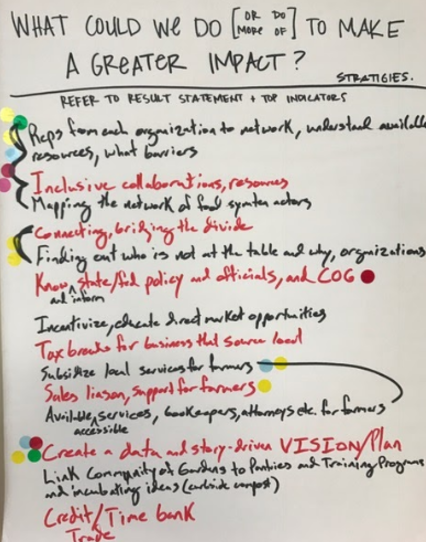 WHAT COULD WE DO [OR DO MORE OF] TO MAKE
A GREATER IMPACT?
STRATIGIES.
REFER TO RESULT STATEMENT + TOP INDICATORS
Reps from each organization to network, understand available
resources, what barriers
Inclusive collaborations, resources
Mapping the network of food system actors
Connecting, bridging the divide
Finding out who is not at the table and why, organizations
Know ^ state/fed policy and officials, and COG
and inform
Incentivize, educate direct market opportunities
Tax breaks for business that source local
Subsidize local services for farmers
Sales liason, support for farmers
Available, services, bookeepers, attorneys etc. for farmers
^ accessible
Create a data and story-driven VISION/Plan
Link Community of Gardens to Pantries and Training Programs
and incubating ideas (curbside compost)
Credit/Time bank
Trade